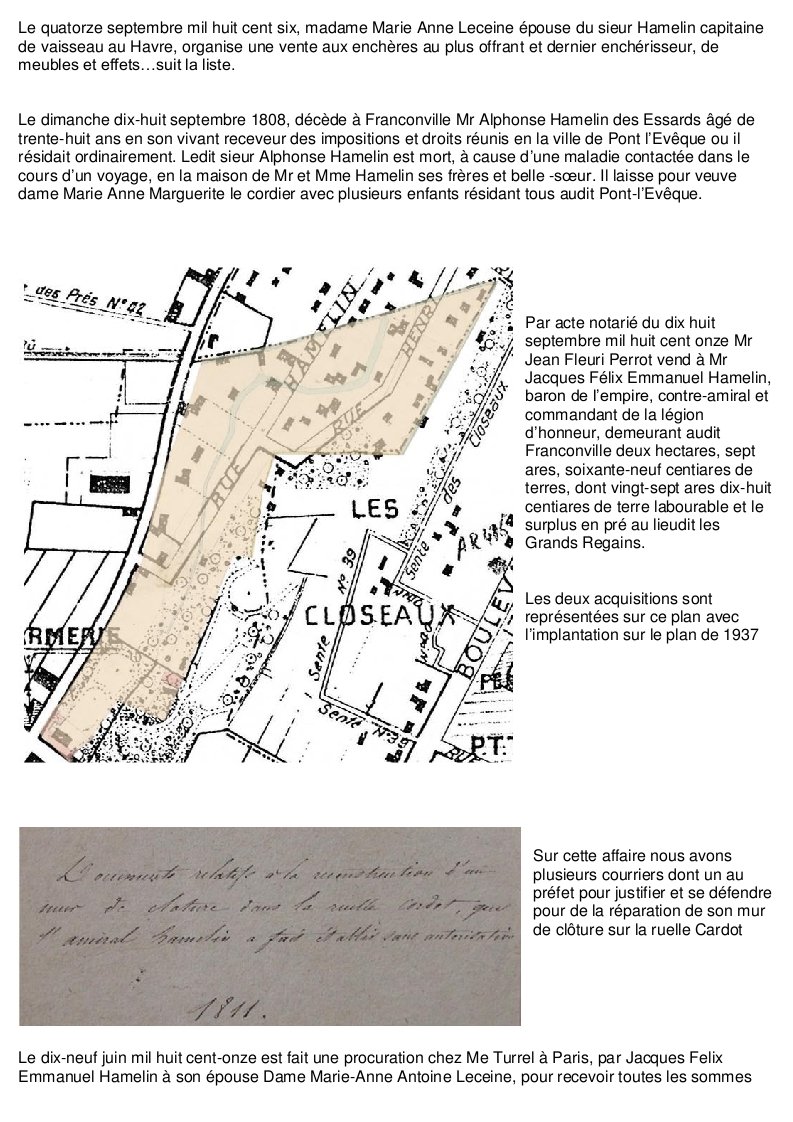 Le quatorze septembre mil huit cent six, madame Marie Anne Leceine épouse du sieur Hamelin capitaine
de vaisseau au Havre, organise une vente aux enchères au plus offrant et dernier enchérisseur, de
meubles et effets…suit la liste.
Le dimanche dix-huit septembre 1808, décède à Franconville Mr Alphonse Hamelin des Essards âgé de
trente-huit ans en son vivant receveur des impositions et droits réunis en la ville de Pont l’Evêque ou il
résidait ordinairement. Ledit sieur Alphonse Hamelin est mort, à cause d’une maladie contactée dans le
cours d’un voyage, en la maison de Mr et Mme Hamelin ses frères et belle -sœur. Il laisse pour veuve
dame Marie Anne Marguerite le cordier avec plusieurs enfants résidant tous audit Pont-l’Evêque.
des Prés N° 42
RUE HAMELIN
RUE HENRI
LES
CLOSEAUX
Sente des Closeaux
Sente N° 39
Sente N° 39
BOULEV
RMERIE
P.T.T
RUE
Par acte notarié du dix huit
septembre mil huit cent onze Mr
Jean Fleuri Perrot vend à Mr
Jacques Félix Emmanuel Hamelin,
baron de l’empire, contre-amiral et
commandant de la légion
d’honneur, demeurant audit
Franconville deux hectares, sept
ares, soixante-neuf centiares de
terres, dont vingt-sept ares dix-huit
centiares de terre labourable et le
surplus en pré au lieudit les
Grands Regains.
Les deux acquisitions sont
représentées sur ce plan avec
l’implantation sur le plan de 1937
Documents relatifs à la reconstruction d'un
mur de clature dans la ruelle Cardot, que
l'amiral hamelin a fait établir sans autorisation
1811.
Sur cette affaire nous avons
plusieurs courriers dont un au
préfet pour justifier et se défendre
pour de la réparation de son mur
de clôture sur la ruelle Cardot
Le dix-neuf juin mil huit cent-onze est fait une procuration chez Me Turrel à Paris, par Jacques Felix
Emmanuel Hamelin à son épouse Dame Marie-Anne Antoine Leceine, pour recevoir toutes les sommes